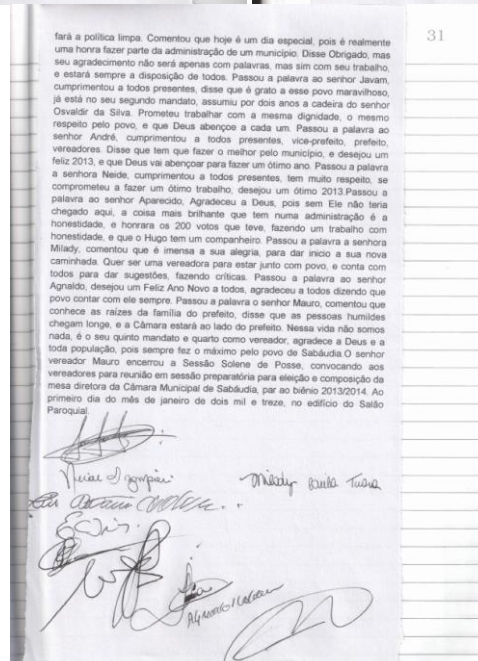 31
fará a política limpa. Comentou que hoje é um dia especial, pois é realmente
uma honra fazer parte da administração de um município. Disse Obrigado, mas
seu agradecimento não será apenas com palavras, mas sim com seu trabalho,
e estará sempre a disposição de todos. Passou a palavra ao senhor Javam,
cumprimentou a todos presentes, disse que é grato a esse povo maravilhoso,
já está no seu segundo mandato, assumiu por dois anos a cadeira do senhor
Osvaldir da Silva. Prometeu trabalhar com a mesma dignidade, o mesmo
respeito pelo povo, e que Deus abençoe a cada um. Passou a palavra ao
senhor André, cumprimentou a todos presentes, vice-prefeito, prefeito,
vereadores. Disse que tem que fazer o melhor pelo município, e desejou um
feliz 2013, e que Deus vai abençoar para fazer um ótimo ano. Passou a palavra
a senhora Neide, cumprimentou a todos presentes, tem muito respeito, se
comprometeu a fazer um ótimo trabalho, desejou um ótimo 2013.Passou a
palavra ao senhor Aparecido, Agradeceu a Deus, pois sem Ele não teria
chegado aqui, a coisa mais brilhante que tem numa administração é a
honestidade, e honrara os 200 votos que teve, fazendo um trabalho com
honestidade, e que o Hugo tem um companheiro. Passou a palavra a senhora
Milady, comentou que é imensa a sua alegria, para dar inicio a sua nova
caminhada. Quer ser uma vereadora para estar junto com povo, e conta com
todos para dar sugestões, fazendo críticas. Passou a palavra ao senhor
Agnaldo, desejou um Feliz Ano Novo a todos, agradeceu a todos dizendo que
povo contar com ele sempre. Passou a palavra o senhor Mauro, comentou que
conhece as raízes da família do prefeito, disse que as pessoas humildes
chegam longe, e a Câmara estará ao lado do prefeito. Nessa vida não somos
nada, é o seu quinto mandato e quarto como vereador, agradece a Deus e a
toda população, pois sempre fez o máximo pelo povo de Sabáudia.O senhor
vereador Mauro encerrou a Sessão Solene de Posse, convocando aos
vereadores para reunião em sessão preparatória para eleição e composição da
mesa diretora da Câmara Municipal de Sabáudia, par ao biênio 2013/2014. Ao
primeiro dia do mês de janeiro de dois mil e treze, no edifício do Salão
Paroquial.
Milady